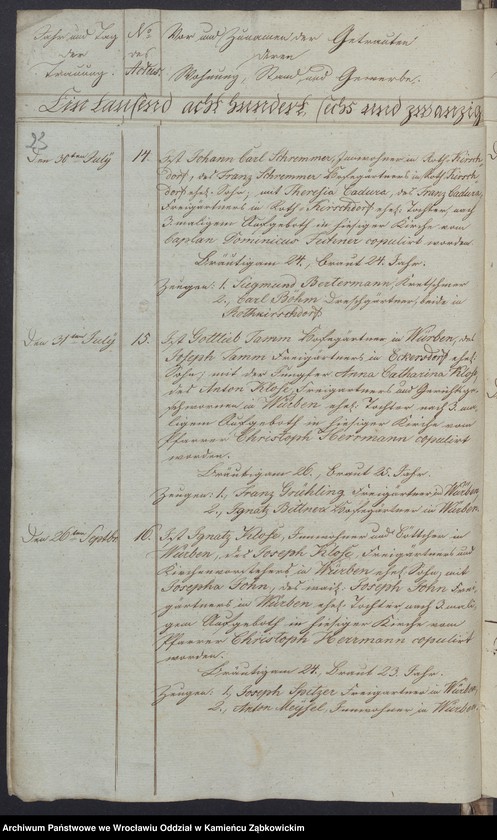 Jahr und Tag
der
Trauung.
No
des
Actus.
Vor und Zunamen der Getrauten
deren
Wohnung, Stand und Gewerbe.
Ein tausend acht hundert, sechs und zwanzig
23
Den 30ten July
14.
Ist Johann Carl Schremmer, Innwohner in Roth-Kirsch
dorf, des Franz Schremmer Hofegärtners in Roth-Kirsch
dorf ehel. Sohn, mit Theresia Cadura, des Franz Cadura,
Freigärtners in Roth-Kirschdorf ehel. Tochter, nach
3.maligem Aufgeboth in hiesiger Kirche vom
Caplan Dominicus copulirt worden.
Bräutigam 24., Braut 24. Jahr.
Zeugen: 1, Siegmund Bertermann, Kretschmer
2., Carl Böhm Dreschgärtner, beide in
Rothkirschdorf.
Den 31ten July
15.
Ist Gottlieb Tamm Hofegärtner in Würben, des
Joseph Tamm Freigärtners in Eckersdorf ehel.
Sohn, mit der Jungfer Anna Catharina Klose,
des Anton Klose, Freigärtners und Gerichtsge-
schwornen in Würben ehel. Tochter nach 3.ma-
ligem Aufgeboth in hiesiger Kirche vom
Pfarrer Christoph Herrmann copulirt
worden.
Bräutigam 26., Braut 25. Jahr.
Zeugen: 1, Franz Freigärtner in Würben
2., Ignatz Bittner Hofegärtner in Würben.
Den 26ten Septbr
16.
Ist Ignatz Klose, Innwohner und in
Würben, des Joseph Klose, Freigärtners und
Kirchenvorstehers in Würben ehel. Sohn, mit
Josepha John, des weil. Joseph John Frei-
gärtners in Würben ehel. Tochter, nach 3.mali-
gem Aufgeboth in hiesiger Kirche vom
Pfarrer Christoph Herrmann copulirt
worden.
Bräutigam 24., Braut 23 Jahr.
Zeugen: 1, Joseph Spitzer Freigärtner in Würben,
2., Anton Meyssel, Innwohner in Würben.
Archiwum Państwowe we Wrocławiu Oddział w Kamieńcu Ząbkowickim